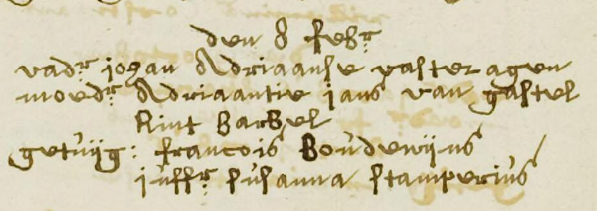 den 8 febr
vadr johan Adriaanse paster agen
moedr Adriaantie Jans van gastel
Kint Barbel
getuijg: francois Boudewijns
juffr susanna stamperius